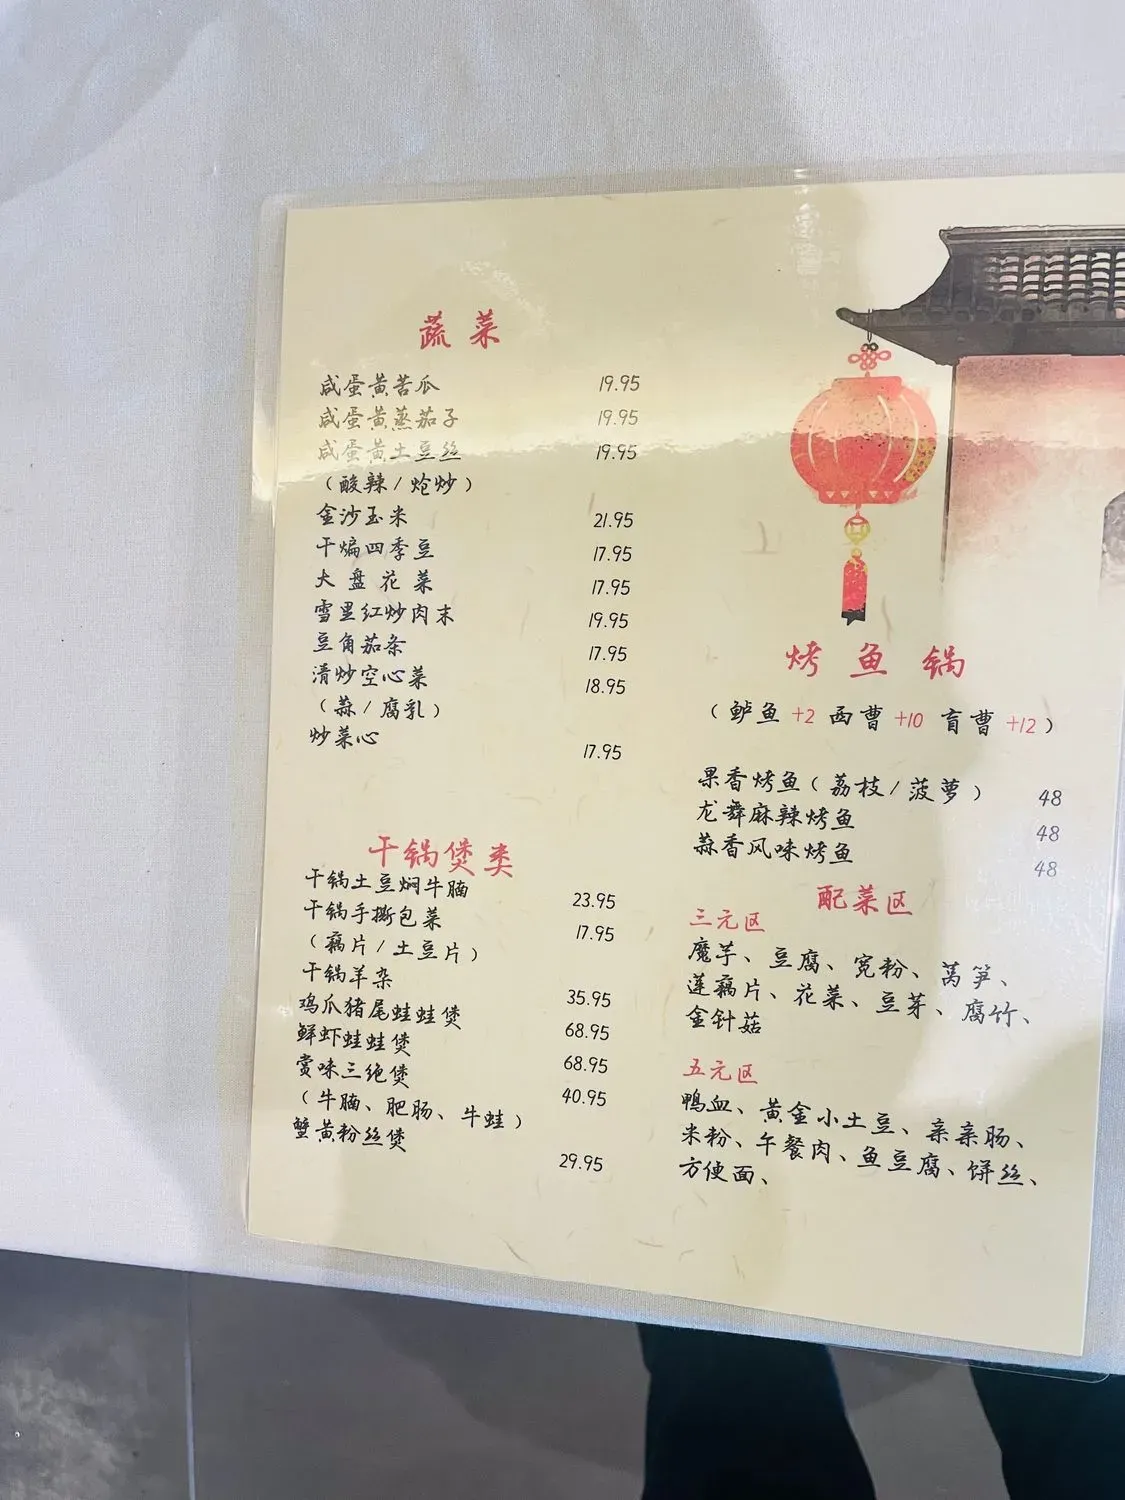 蔬菜
咸蛋黄苦瓜 19.95
咸蛋黄蒸茄子 19.95
咸蛋黄土豆丝 19.95
（酸辣/炝炒）
金沙玉米 21.95
干煸四季豆 17.95
大盘花菜 17.95
雪里红炒肉末 19.95
豆角茄条 17.95
清炒空心菜 18.95
（蒜/腐乳）
炒菜心 17.95
干锅煲类
干锅土豆焖牛腩 23.95
干锅手撕包菜 17.95
（藕片/土豆片）
干锅羊杂 35.95
鸡爪猪尾蛙蛙煲 68.95
鲜虾蛙蛙煲 68.95
赏味三绝煲 40.95
（牛腩、肥肠、牛蛙）
蟹黄粉丝煲 29.95
烤鱼锅
（鲈鱼 +2 西曹 +10 盲曹 +12）
果香烤鱼（荔枝/菠萝） 48
龙舞麻辣烤鱼 48
蒜香风味烤鱼 48
配菜区
三元区
魔芋、豆腐、宽粉、莴笋、
莲藕片、花菜、豆芽、腐竹、
金针菇
五元区
鸭血、黄金小土豆、亲亲肠、
米粉、午餐肉、鱼豆腐、饼丝、
方便面、